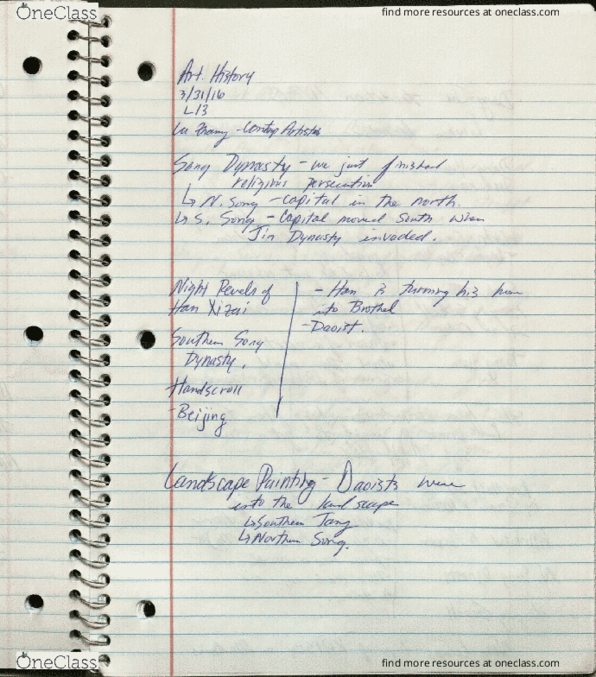 OneClass
find more resources at oneclass.com
Art History
3/31/16
L13
Lu Zhang - Contemp Artists
Song Dynasty - we just finished
religious persecution
↳ N. Song - Capital in the north.
↳ S. Song - Capital moved South when
Jin Dynasty invaded.
Night Revels of
Han Xizai
Southern Song
Dynasty.
Handscroll
-Beijing
- Han is turning his home
into Brothel
-Daoist.
Landscape Painting - Daoists were
into the landscape
↳Southern Tang
↳Northern Song.
OneClass
find more resources at oneclass.com